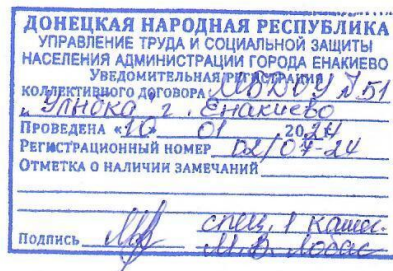 ДОНЕЦКАЯ НАРОДНАЯ РЕСПУБЛИКА
УПРАВЛЕНИЕ ТРУДА И СОЦИАЛЬНОЙ ЗАЩИТЫ
НАСЕЛЕНИЯ АДМИНИСТРАЦИИ ГОРОДА ЕНАКИЕВО
УВЕДОМИТЕЛЬНАЯ РЕГИСТРАЦИЯ
КОЛЛЕКТИВНОГО ДОГОВОРА МБДОУ №51
"Улыбка" г. Енакиево
ПРОВЕДЕНА «10» 01 2024
РЕГИСТРАЦИОННЫЙ НОМЕР 02/07-24
ОТМЕТКА О НАЛИЧИИ ЗАМЕЧАНИЙ
спец. 1 катег.
ПОДПИСЬ М.В. Лобас